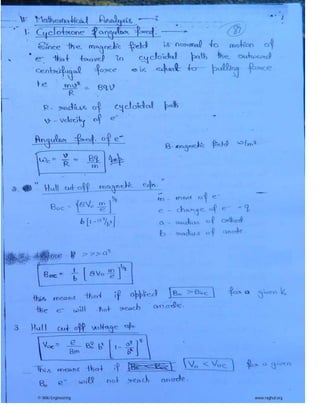 * Mathematical Analysis
1. Cyclotrone & angular freq.
(8)
Since the magnetic field is normal to motion of
e⁻ that travel in cycloidal path the outward
centrifugal force is equal to pulling force
ie mv²/R = BqV
R - radius of cycloidal path
v - velocity of e⁻
Angular freq. of e⁻
B - magnetic field w/m²
Wc = v/R = Bq/m
2. " Hull cut off magnetic eqn. "
m - mass of e⁻
Boc = [8V₀ m/e]^½ / b[1-a²/b²]
e - charge of e⁻ = q
a - radius of cathod
b - radius of anode
if b² >>> a²
Boc = 1/b [8V₀ m/e]^½
this means that if applied B₀ > Boc for a given V₀
the e⁻ will not reach anode.
3 Hull cut off voltage eqn
Voc = e/8m B₀² b² [1 - a²/b²]²
This means that if V₀ < Voc for a given
B₀ e⁻ will not reach anode.
© Wiki Engineering
www.raghul.org